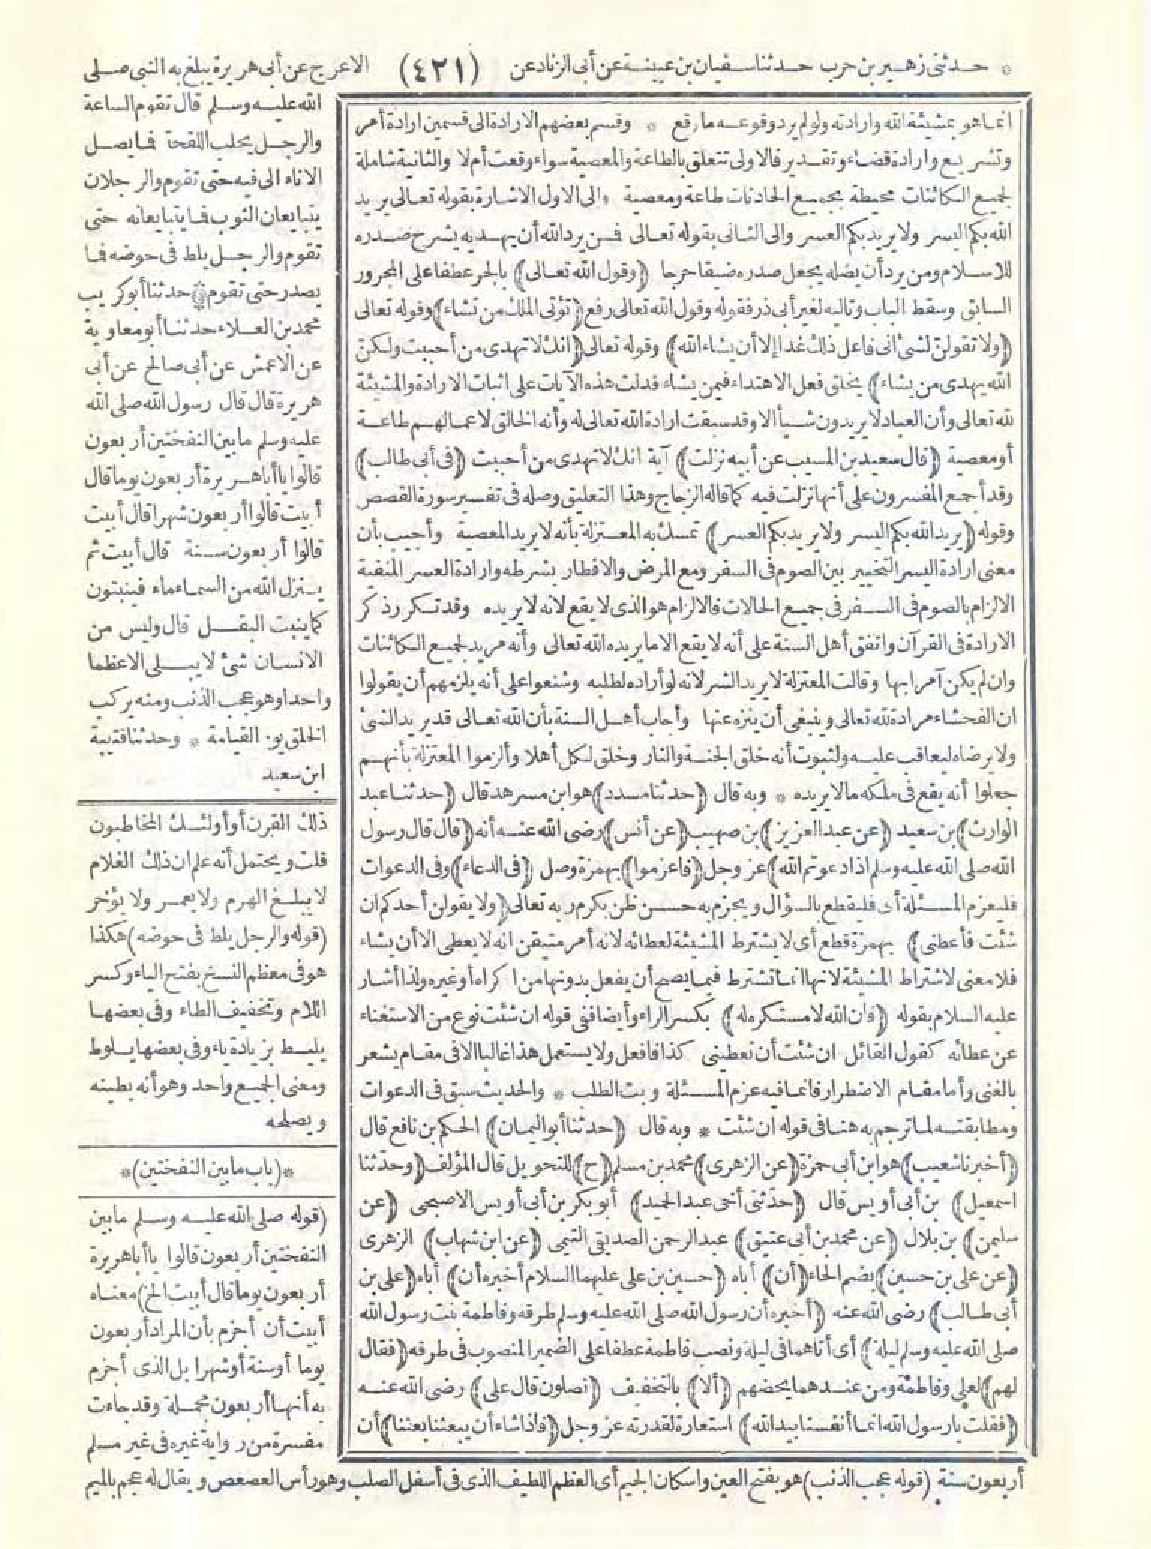 * حدثني زهير بن حرب حدثنا سفيان بن عيينة عن أبي الزناد عن (٤٢١) الاعرج عن أبي هريرة يبلغ به النبي صلى
الله عليه وسلم قال تقوم الساعة
والرجل يحلب اللقحة فما يصل
الاناء الى فيه حتى تقوم والرجلان
يتبايعان الثوب فما يتبايعانه حتى
تقوم والرجل يلط في حوضه فما
يصدر حتى تقوم * حدثنا أبو كريب
محمد بن العلاء حدثنا أبو معاوية
عن الاعمش عن أبي صالح عن أبي
هريرة قال قال رسول الله صلى الله
عليه وسلم ما بين النفختين أربعون
قالوا يا أبا هريرة أربعون يوما قال
أبيت قالوا أربعون شهرا قال أبيت
قالوا أربعون سنة قال أبيت ثم
ينزل الله من السماء ماء فينبتون
كما ينبت البقل قال وليس من
الانسان شئ لا يبلى الا عظما
واحدا وهو عجب الذنب ومنه يركب
الخلق يوم القيامة * وحدثنا قتيبة
ابن سعيد
ذلك القرن أو أولئك المخاطبون
قلت ويحتمل أنه علم ان ذلك الغلام
لا يبلغ الهرم ولا يعمر ولا يؤخر
(قوله والرجل يلط في حوضه) هكذا
هو في معظم النسخ بفتح الياء وكسر
اللام وتخفيف الطاء وفي بعضها
يليط بزيادة ياء وفي بعضها يلوط
ومعنى الجميع واحد وهو أنه يطينه
ويصلحه
*(باب ما بين النفختين)*
(قوله صلى الله عليه وسلم ما بين
النفختين أربعون قالوا يا أبا هريرة
أربعون يوما قال أبيت الخ) معناه
أبيت أن أجزم بأن المراد أربعون
يوما أو سنة أو شهرا بل الذي أجزم
به أنها أربعون مجملة وقد جاءت
مفسرة من رواية غيره في غير مسلم
انما هو بمشيئة الله وارادته ولو لم يرد وقوعه ما وقع * وقسم بعضهم الارادة الى قسمين ارادة أمر
وتشريع وارادة قضاء وتقدير فالاولى تتعلق بالطاعة والمعصية سواء وقعت أم لا والثانية شاملة
لجميع الكائنات محيطة بجميع الحادثات طاعة ومعصية والى الاول الاشارة بقوله تعالى يريد
الله بكم اليسر ولا يريد بكم العسر والى الثاني بقوله تعالى فمن يرد الله أن يهديه يشرح صدره
للاسلام ومن يرد أن يضله يجعل صدره ضيقا حرجا (وقول الله تعالى) بالجر عطفا على المجرور
السابق وسقط الباب وتاليه لغير أبي ذر فقوله وقول الله تعالى رفع (تؤتي الملك من تشاء) وقوله تعالى
(ولا تقولن لشئ اني فاعل ذلك غدا إلا أن يشاء الله) وقوله تعالى (انك لا تهدي من أحببت ولكن
الله يهدي من يشاء) يخلق فعل الاهتداء فيمن يشاء فدلت هذه الآيات على اثبات الارادة والمشيئة
لله تعالى وأن العباد لا يريدون شيأ الا وقد سبقت ارادة الله تعالى له وأنه الخالق لاعمالهم طاعة
أو معصية (قال سعيد بن المسيب عن أبيه نزلت) آية انك لا تهدي من أحببت (في أبي طالب)
وقد أجمع المفسرون على أنها نزلت فيه كما قاله الزجاج وهذا التعليق وصله في تفسير سورة القصص
وقوله (يريد الله بكم اليسر ولا يريد بكم العسر) تمسك به المعتزلة بأنه لا يريد المعصية وأجيب بأن
معنى ارادة اليسر التخيير بين الصوم في السفر ومع المرض والافطار بشرطه وارادة العسر المنفية
الالزام بالصوم في السفر في جميع الحالات فالالزام هو الذي لا يقع لانه لا يريده وقد تكرر ذكر
الارادة في القرآن واتفق أهل السنة على أنه لا يقع الا ما يريده الله تعالى وأنه مريد لجميع الكائنات
وان لم يكن آمرا بها وقالت المعتزلة لا يريد الشر لانه لو أراده لطلبه وشنعوا على أنه يلزمهم أن يقولوا
ان الفحشاء مرادة لله تعالى وينبغي أن ينزه عنها وأجاب أهل السنة بأن الله تعالى قد يريد الشئ
ولا يرضاه ليعاقب عليه ولثبوت أنه خلق الجنة والنار وخلق لكل أهلا وألزموا المعتزلة بأنهم
جعلوا أنه يقع في ملكه ما لا يريده * وبه قال (حدثنا مسدد) هو ابن مسرهد قال (حدثنا عبد
الوارث) بن سعيد (عن عبد العزيز) بن صهيب (عن أنس) رضي الله عنه أنه (قال قال رسول
الله صلى الله عليه وسلم اذا دعوتم الله) عز وجل (فاعزموا) بهمزة وصل (في الدعاء) وفي الدعوات
فليعزم المسئلة أي فليقطع بالسؤال ويجزم به حسن ظن بكرم ربه تعالى (ولا يقولن أحدكم ان
شئت فأعطني) بهمزة قطع أي لا يشترط المشيئة لعطائه لانه أمر متيقن انه لا يعطي الا أن يشاء
فلا معنى لاشتراط المشيئة لانها انما تشترط فيما يصح أن يفعل بدونها من اكراه أو غيره ولذا أشار
عليه السلام بقوله (فان الله لا مستكره له) بكسر الراء وأيضا ففي قوله ان شئت نوع من الاستغناء
عن عطائه كقول القائل ان شئت أن تعطيني كذا فافعل ولا يستعمل هذا غالبا الا في مقام يشعر
بالغنى وأما مقام الاضطرار فانما فيه عزم المسئلة وبت الطلب * والحديث سبق في الدعوات
ومطابقته لما ترجم به هنا في قوله ان شئت * وبه قال (حدثنا أبو اليمان) الحكم بن نافع قال
(أخبرنا شعيب) هو ابن أبي حمزة (عن الزهري) محمد بن مسلم (ح) للتحويل قال المؤلف (وحدثنا
اسمعيل) بن أبي أويس قال (حدثني أخي عبد الحميد) أبو بكر بن أبي أويس الاصبحي (عن
سليمن) بن بلال (عن محمد بن أبي عتيق) عبد الرحمن الصديقي التيمي (عن ابن شهاب) الزهري
(عن علي بن حسين) بضم الحاء (أن) أباه (حسين بن علي عليهما السلام أخبره أن) أباه (علي بن
أبي طالب) رضي الله عنه (أخبره أن رسول الله صلى الله عليه وسلم طرقه وفاطمة بنت رسول الله
صلى الله عليه وسلم ليلة) أي أتاهما في ليلة ونصب فاطمة عطفا على الضمير المنصوب في طرقه (فقال
لهم) لعلي وفاطمة ومن عندهما يحضهم (ألا) بالتخفيف (تصلون قال علي) رضي الله عنه
(فقلت يا رسول الله انما أنفسنا بيد الله) استعارة لقدرته عز وجل (فاذا شاء أن يبعثنا بعثنا) أن
أربعون سنة (قوله عجب الذنب) هو بفتح العين واسكان الجيم أي العظم اللطيف الذي في أسفل الصلب وهو رأس العصعص ويقال له عجم بالميم